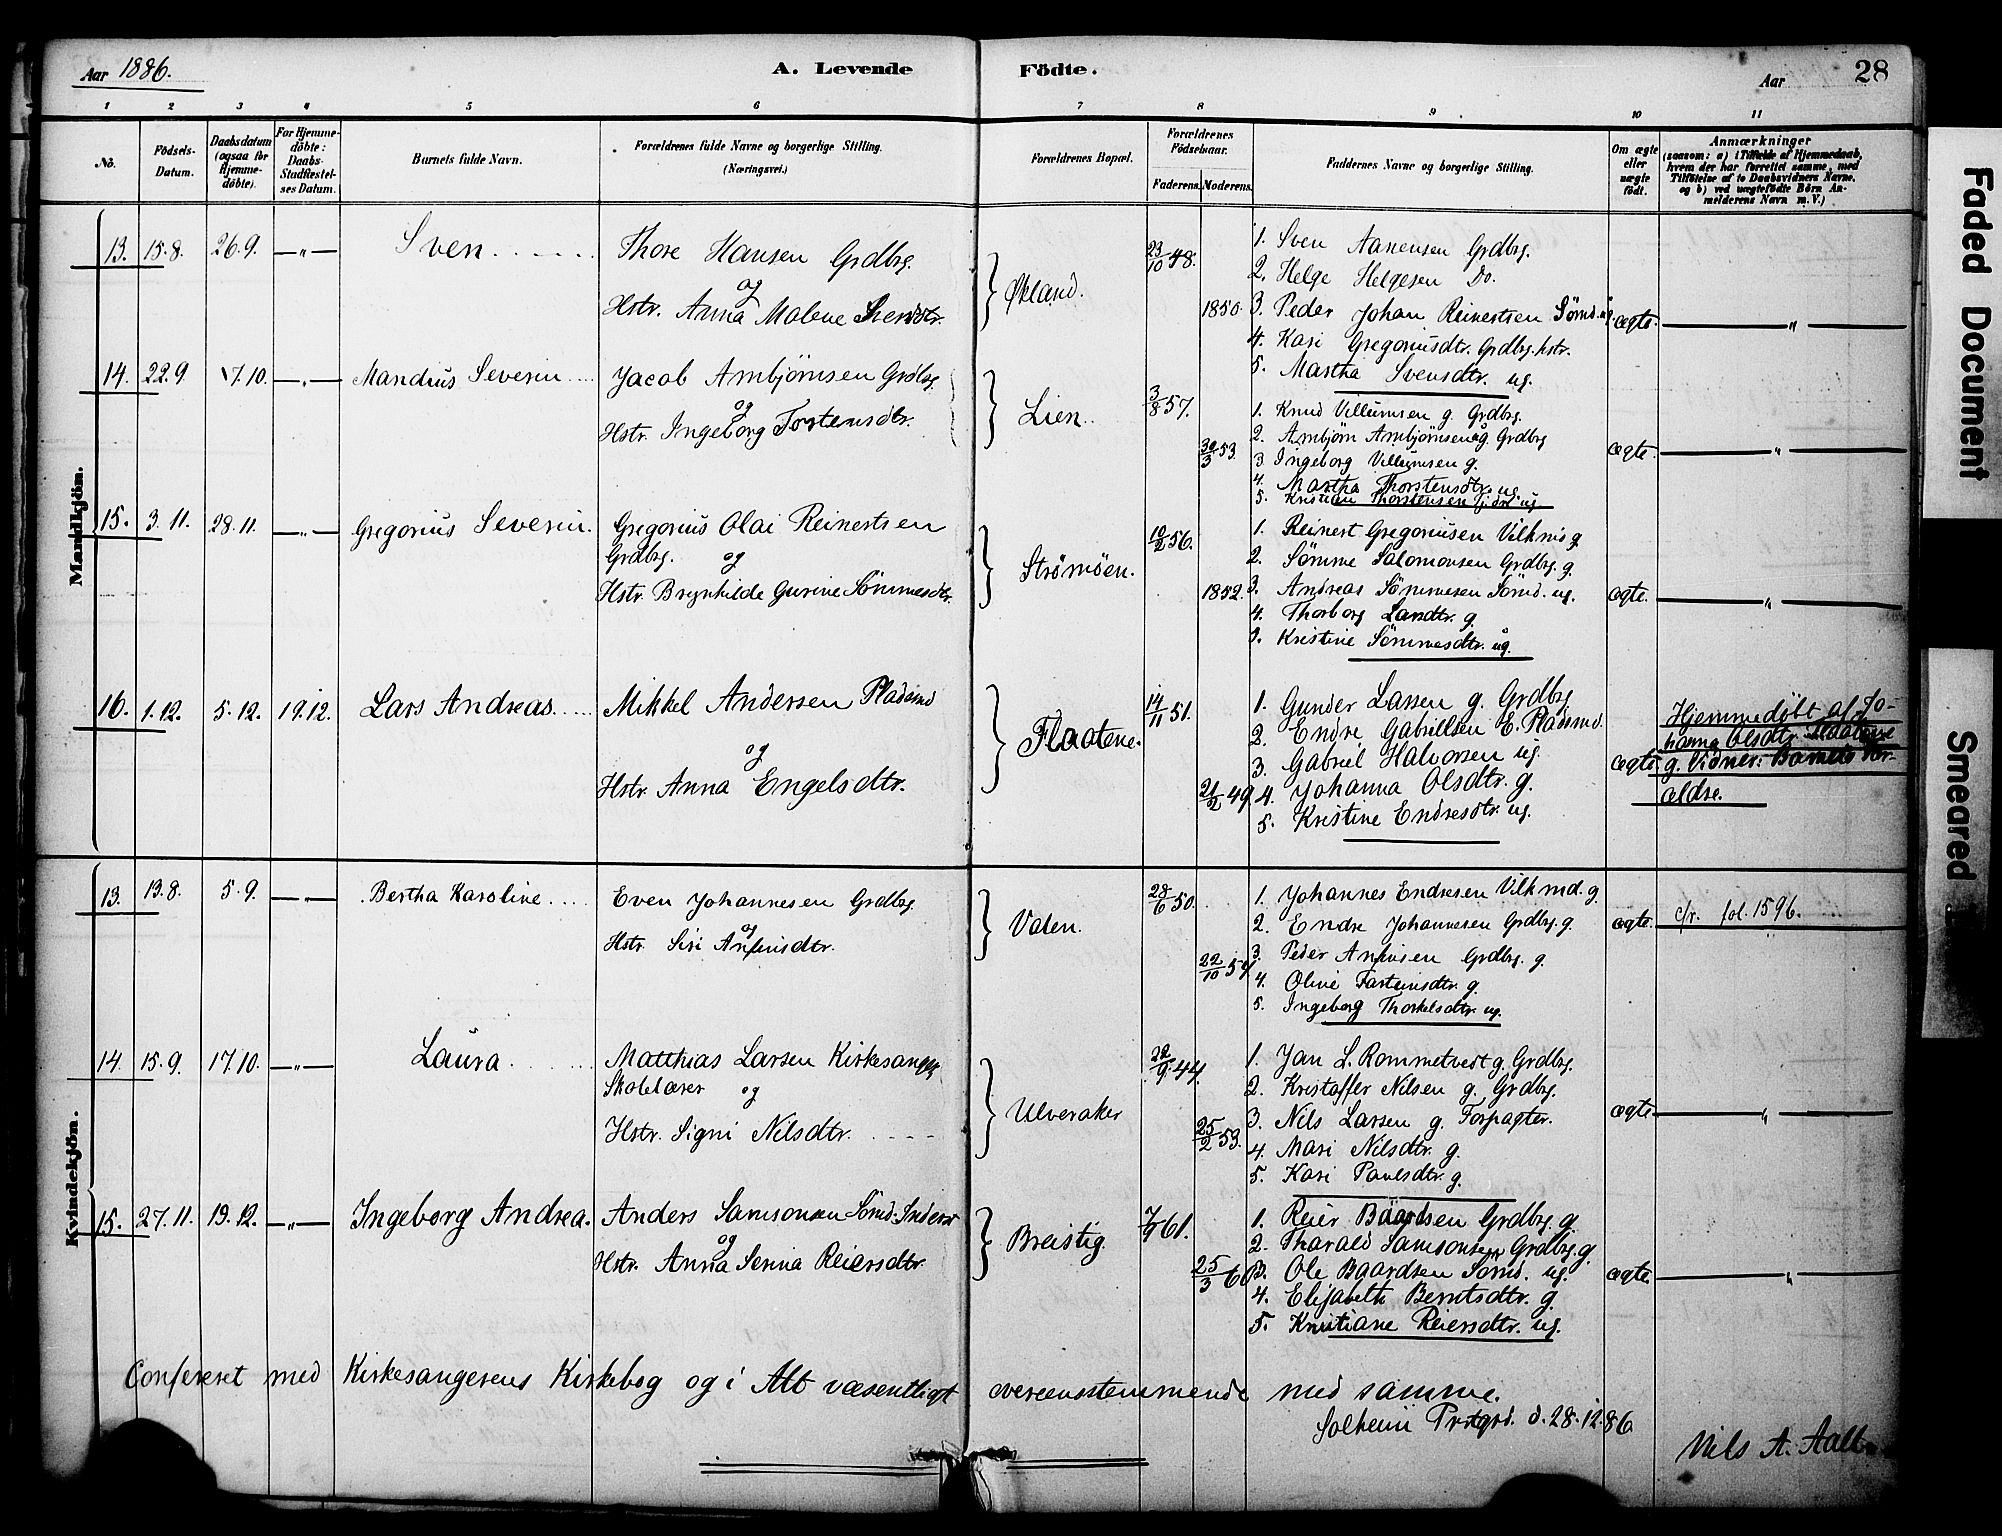 Aar 1886. A. Levende Födte. Aar 28
1 2 3 4 5 6 7 8 9 10 11
Nö. Födsels-Datum. Daabsdatum (ogsaa for Hjemme-döbte). For Hjemme-döbte: Daabs-Stadfæstel-ses Datum. Barnets fulde Navn. Forældrenes fulde Navne og borgerlige Stilling. (Næringsvei.) Forældrenes Bopæl. Forældrenes Födselsaar. Faderens. Moderens. Faddernes Navne og borgerlige Stilling. Om ægte eller uægte födt. Anmærkninger (saasom: a) i Tilfælde af Hjemmedaab, hvem der har forrettet samme, med Tilföielse af to Daabsvidners Navne, og b) ved uægtefödte Börn An-melderens Navn m. V.)
Mandkjön.
13. 15.8. 26.9. —„— Sven Thore Hansen Grdbrg. Økland. 23/10 48. 1. Sven Aanensen Grdbrg.
og 2. Helge Helgesen Do.
Hstr. Anna Malene Svendtr. 1850. 3. Peder Johan Reinertsen Sømd. ug. ægte. „
4. Kari Gregoriusdtr. Grdbrg. hstr.
5. Martha Svensdtr. ug.
14. 22.9. 17.10. —„— Mandius Severin Jacob Ambjørnsen Grdbrg. Lien. 3/8 57. 1. Knud Villumsen g. Grdbrg.
og 2. Ambjørn Ambjørnsen g. Grdbrg
Hstr. Ingeborg Torstensdtr. 30/3 53. 3. Ingeborg Villumsen g. ægte. „
4. Martha Thorstensdtr. ug.
5. Kristian Thorstensen
15. 3.11. 28.11. —„— Gregorius Severin. Gregorius Olai Reinertsen Strømøen. 10/2 56. 1. Reinert Gregoriusen Vilkmd g.
Grdbrg. og 2. Sømme Salomonsen Grdbrg. g.
Hstr. Brynhilde Gurine Sømmesdtr. 1852. 3. Andreas Sømmesen Sømd. ug. ægte. „
4. Thorborg Larsdtr. g.
5. Kristine Sømmesdtr. ug.
16. 1.12. 5.12. 19.12. Lars Andreas. Mikkel Andersen Pladsmd Flaatene. 14/11 51. 1. Gunder Larsen g. Grdbrg
og 2. Endre Gabrielsen E. Pladsmd.
Hstr. Anna Engelsdtr. 21/2 49 3. Gabriel Halvorsen ug. ægte.
4. Johanna Olsdtr. g.
5. Kristine Endresdtr. ug.
Hjemmedøbt af Jo-
hanna Olsdtr. Flaatene
g. Vidner: Barnets For-
ældre.
Kvindekjön.
13. 13.8. 5.9. —„— Bertha Karoline. Even Johannesen Grdbrg. Valen. 28/6 50. 1. Johannes Endresen Vilkmd. g.
og 2. Endre Johannesen Grdbrg. g. ægte. c/r. fol. 1596.
Hstr. Siri Anfinsdtr. 22/10 57. 3. Peder Anfinsen Grdbrg. g.
4. Oline Fasteinsdtr. g.
5. Ingeborg Thorkelsdtr. ug.
14 15.9. 17.10. —„— Laura Matthias Larsen Kirkesanger Ulveraker 22/9 44. 1. Jan L. Rommetvedt g. Grdbrg.
Skolelærer og 2. Kristoffer Nilsen g. Grdbrg.
Hstr. Signi Nilsdtr. 25/2 53. 3. Nils Larsen g. Forpagter. ægte „
4. Mari Nilsdtr. g.
5. Kari Paulsdtr. g.
15. 27.11. 19.12. —„— Ingeborg Andrea. Anders Samsonsen Sømd. Inderst Breistig. 7/9 61. 1. Reier Baardsen Grdbrg. g.
og 2. Tharald Samsonsen Grdbrg. g.
Hstr. Anna Serina Reiersdtr. 25/3 60. 3. Ole Baardsen Sømd. ug. ægte. „
4. Elisabeth Berntsdtr. g.
5. Kristiane Reiersdtr. ug.
Confereret med Kirkesangerens Kirkebog og i Alt væsentligt overeensstemmende med samme.
Solheim Prstgrd. d. 28.12.86
Nils A. Aall
Faded Document
Smeared